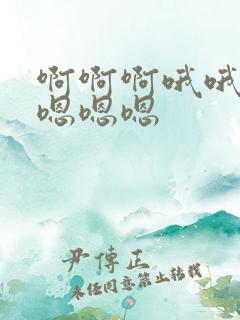 啊啊啊哦哦
嗯嗯嗯
尹傅正
未经同意禁止转载